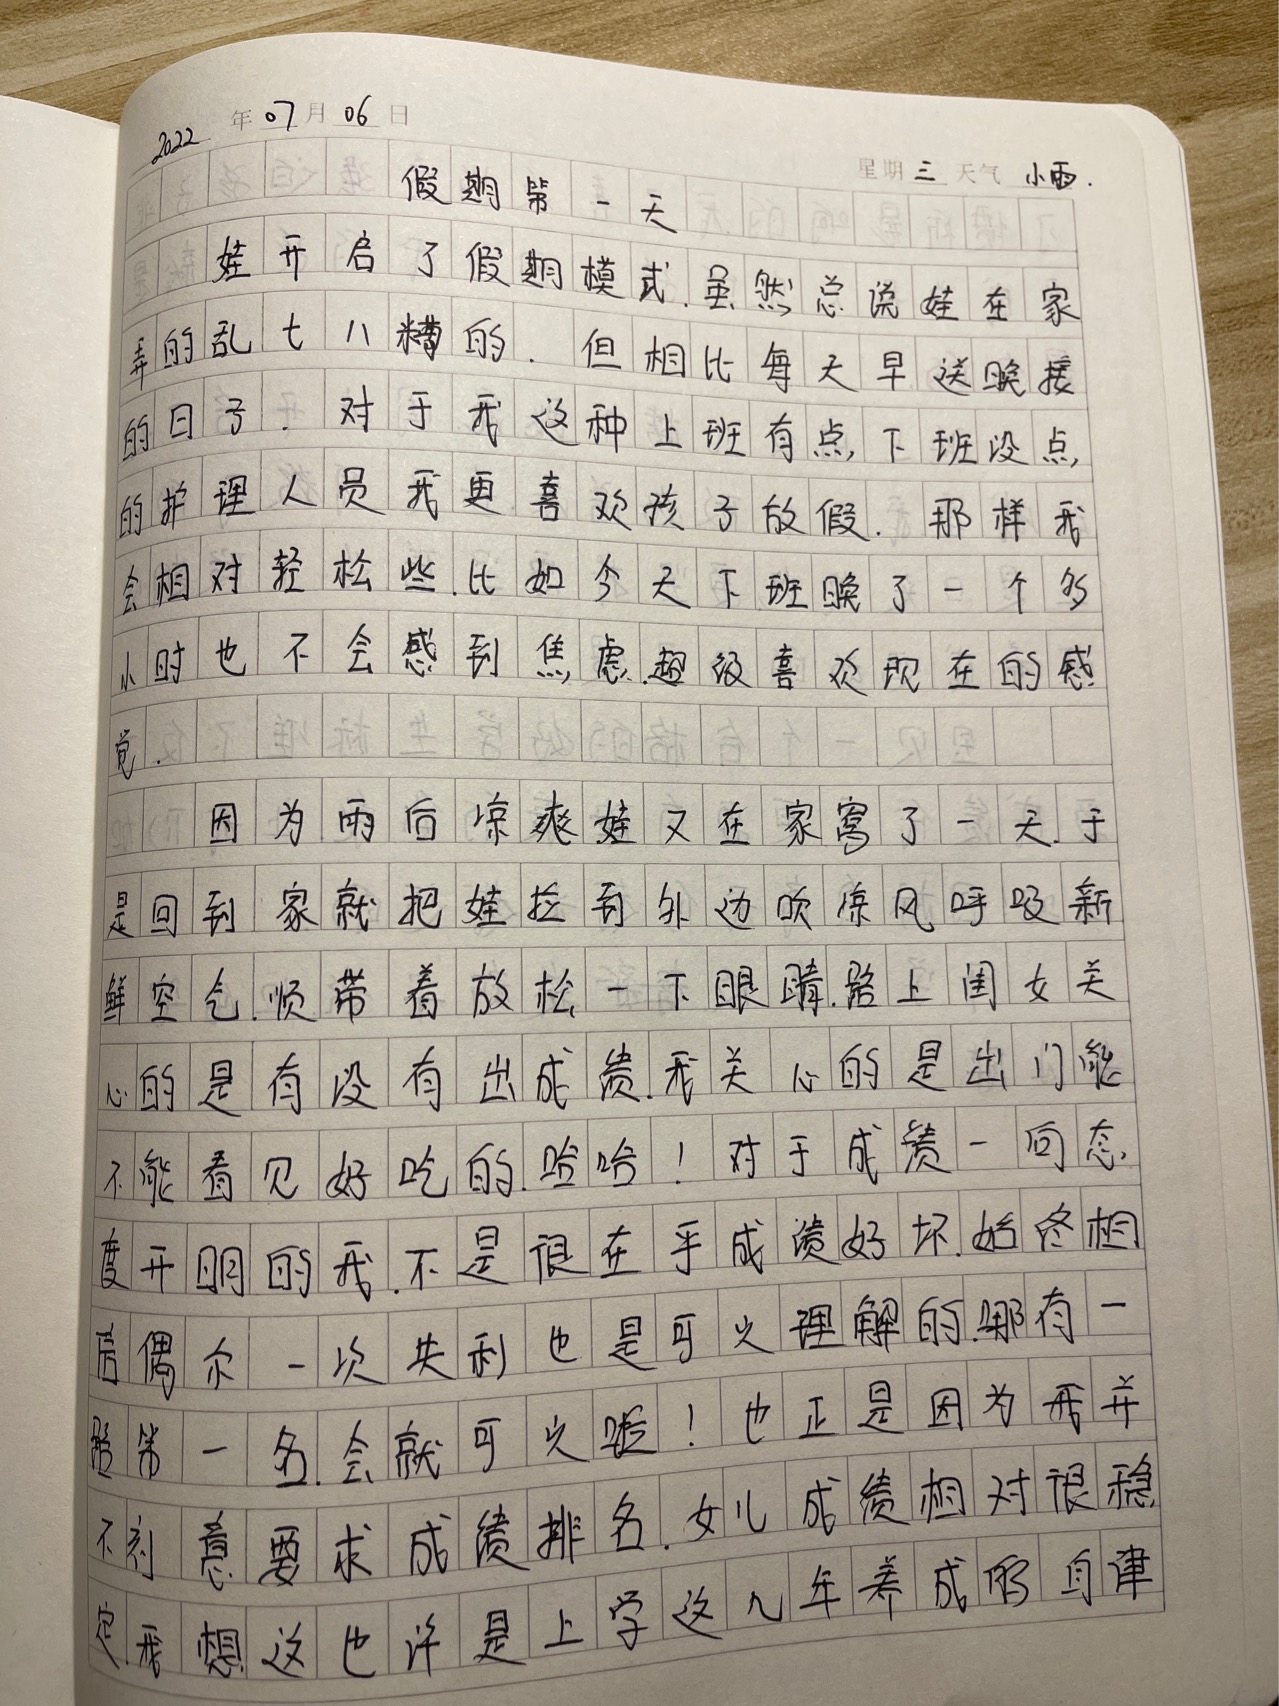 2022年07月06日
星期三 天气 小雨.
假期第一天
娃开启了假期模式.虽然总说娃在家
弄的乱七八糟的.但相比每天早送晚接
的日子.对于我这种上班有点,下班没点,
的护理人员我更喜欢孩子放假.那样我
会相对轻松些.比如今天下班晚了一个多
小时也不会感到焦虑.超级喜欢现在的感
觉.
因为雨后凉爽娃又在家窝了一天.于
是回到家就把娃拉到外边吹凉风呼吸新
鲜空气.顺带着放松一下眼睛.路上闺女关
心的是有没有出成绩.我关心的是出门能
不能看见好吃的.哈哈!对于成绩一向态
度开明的我.不是很在乎成绩好坏.始终相
信偶尔一次失利也是可以理解的.哪有一
路第一名.会就可以啦!也正是因为我并
不刻意要求成绩排名.女儿成绩相对很稳
定.我想这也许是上学这九年养成的自律